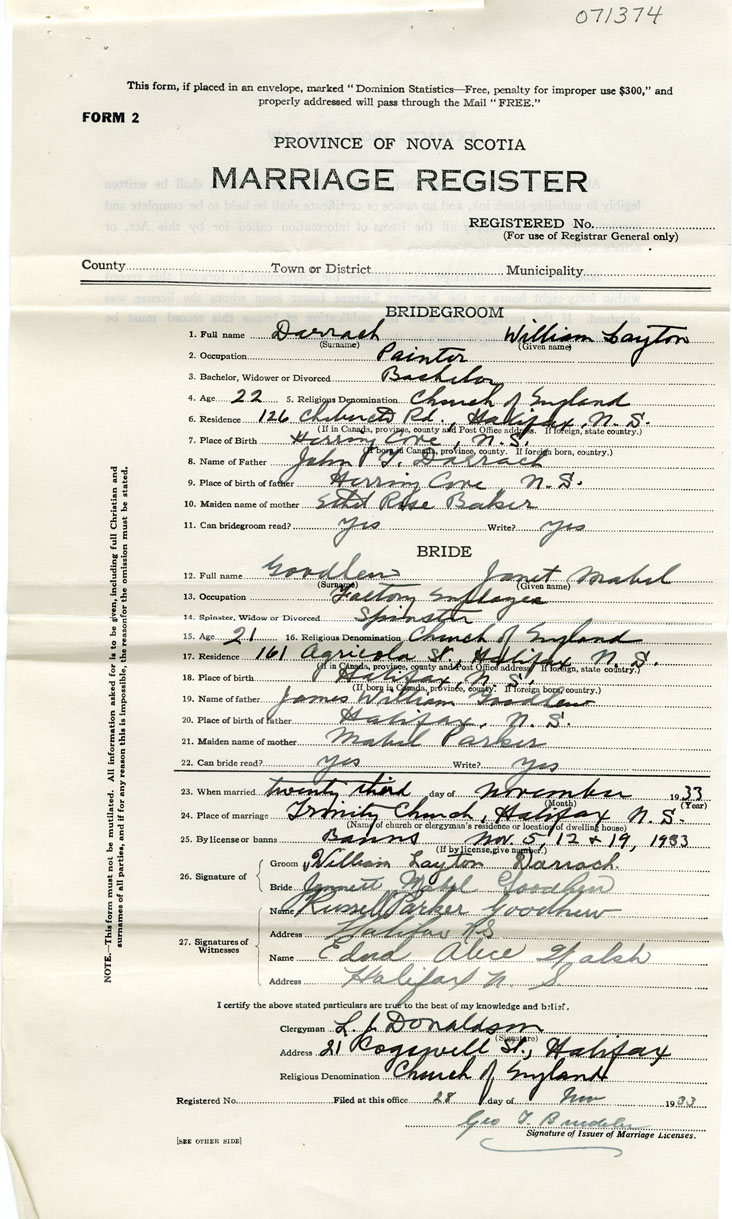 071374
This form, if placed in an envelope, marked "Dominion Statistics—Free, penalty for improper use $300," and
properly addressed will pass through the Mail "FREE."
FORM 2
PROVINCE OF NOVA SCOTIA
MARRIAGE REGISTER
REGISTERED No.
(For use of Registrar General only)
County Town or District Municipality
BRIDEGROOM
1. Full name Darrach William Layton
(Surname) (Given name)
2. Occupation Painter
3. Bachelor, Widower or Divorced Bachelor
4. Age 22 5. Religious Denomination Church of England
6. Residence 126 Chebucto Rd., Halifax, N. S.
(If in Canada, province, county and Post Office address. If foreign, state country.)
7. Place of Birth Herring Cove, N.S.
(If born in Canada, province, county. If foreign born, county.)
8. Name of Father John Darrach
9. Place of birth of father Herring Cove N.S.
10. Maiden name of mother Ethel Rose Baker
11. Can bridegroom read? yes Write? yes
BRIDE
12. Full name Goodhew Janet Mabel
(Surname) (Given name)
13. Occupation Factory Employee
14. Spinster, Widow or Divorced Spinster
15. Age 21 16. Religious Denomination Church of England
17. Residence 161 Agricola St., Halifax N. S.
(If in Canada, province, county and Post Office address. If foreign, state country.)
18. Place of birth Halifax, N. S.
(If born in Canada, province, county. If foreign born, county.)
19. Name of father James William Goodhew
20. Place of birth of father Halifax, N. S.
21. Maiden name of mother Mabel Parker
22. Can bride read? yes Write? yes
23. When married twenty third day of November 1933
(Month) (Year)
24. Place of marriage Trinity Church, Halifax N. S.
(Name of church or clergyman's residence or location of dwelling house)
25. By license or banns Banns Nov. 5, 12 & 19, 1933
(If by license, give number.)
26. Signature of
Groom William Layton Darrach
Bride Jannett Mabel Goodhew
27. Signatures of Witnesses
Name Russell Parker Goodhew
Address Halifax N.S
Name Edna Alice Walsh
Address Halifax N. S.
I certify the above stated particulars are true to the best of my knowledge and belief.
Clergyman L. J. Donaldson
(Signature)
Address 21 Cogswell St., Halifax
Religious Denomination Church of England
Registered No. Filed at this office 28 day of Nov 1933
Geo T.
Signature of Issuer of Marriage Licenses.
[SEE OTHER SIDE]
NOTE.—This form must not be mutilated. All information asked for is to be given, including full Christian and
surnames of all parties, and if for any reason this is impossible, the reason for the omission must be stated.